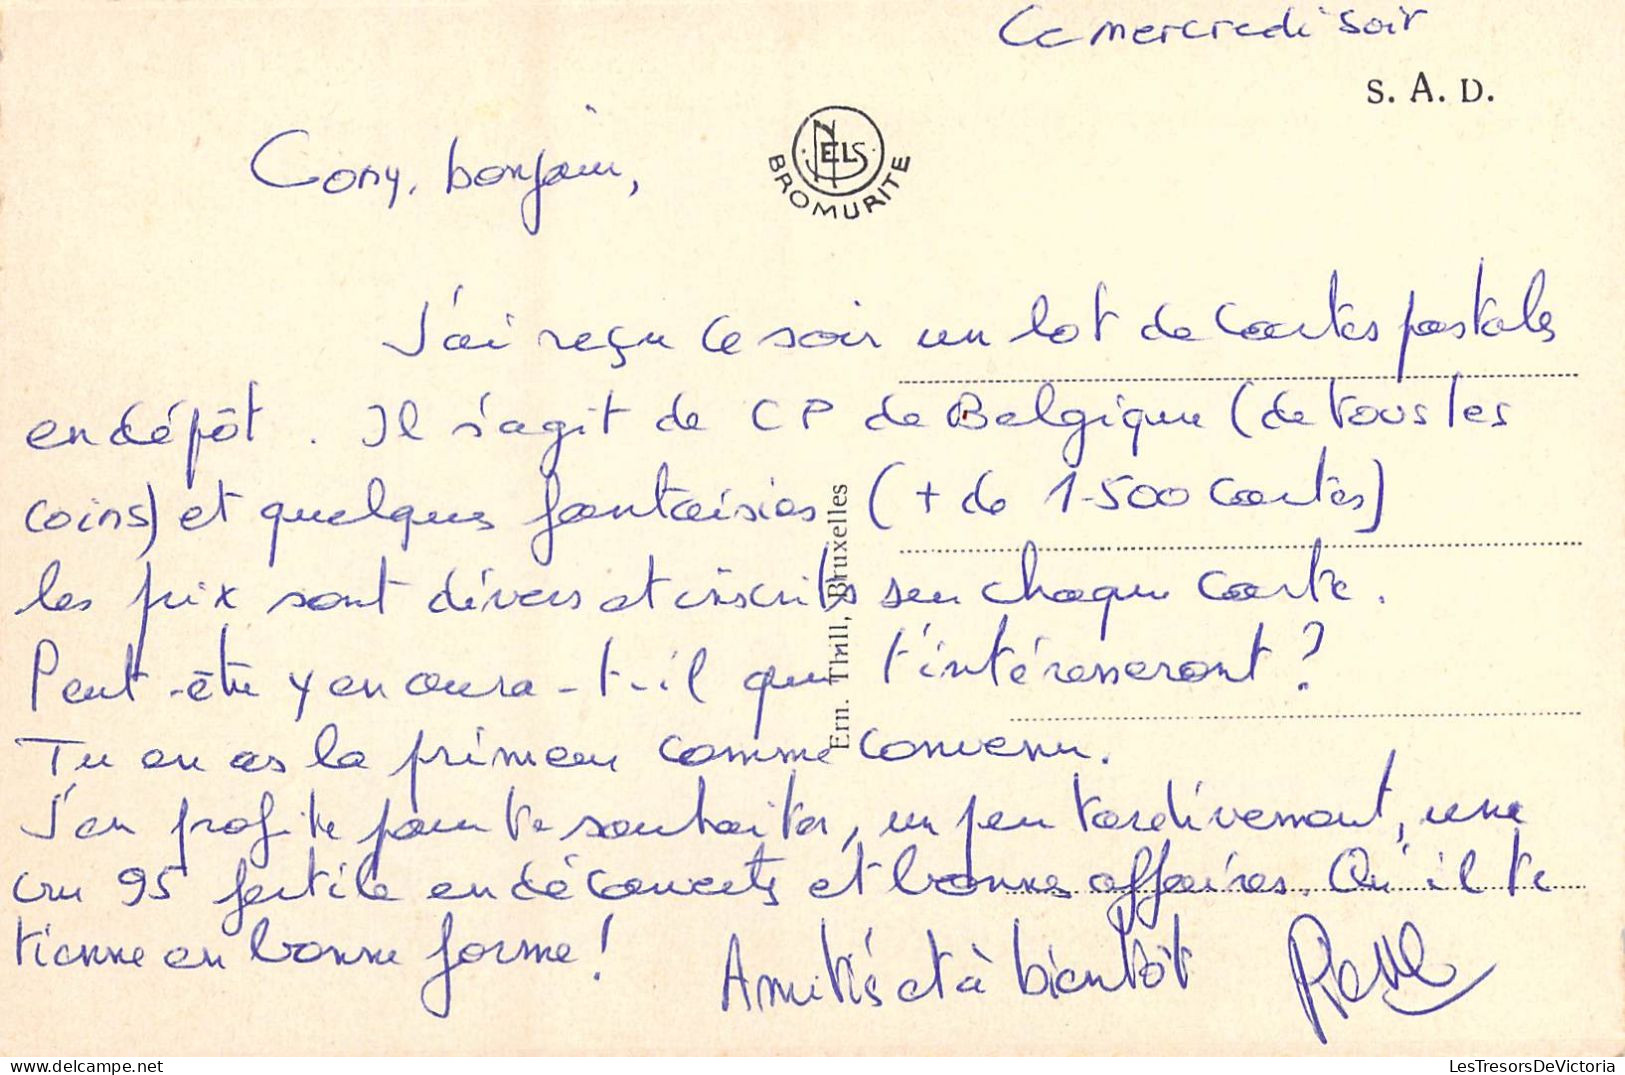 Ce mercredi soir
S. A. D.
NELS
BROMURITE
Cony, bonjour,
J'ai reçu ce soir un lot de cartes postales
en dépôt. Il s'agit de CP de Belgique (de tous les
coins) et quelques fantaisies (+ de 1.500 cartes)
les prix sont divers et inscrits sur chaque carte.
Peut-être y en aura-t-il qui t'intéresseront?
Tu en as la primeur comme convenu.
J'en profite pour te souhaiter, un peu tardivement, une
année 95 fertile en découvertes et bonnes affaires. Qu'il te
tienne en bonne forme!
Amitiés et à bientôt
Ern. Thill, Bruxelles
LesTresorsDeVictoria